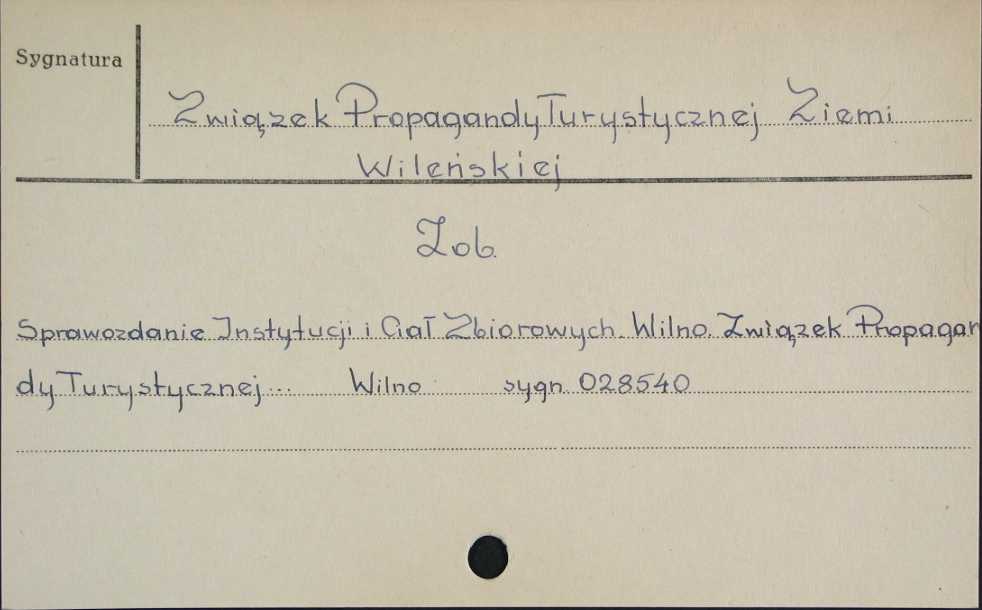 Sygnatura
Związek Propagandy Turystycznej Ziemi
Wileńskiej
Zob.
Sprawozdanie Instytucji i Ciał Zbiorowych. Wilno. Związek Propagan
dy Turystycznej... Wilno sygn. 028540